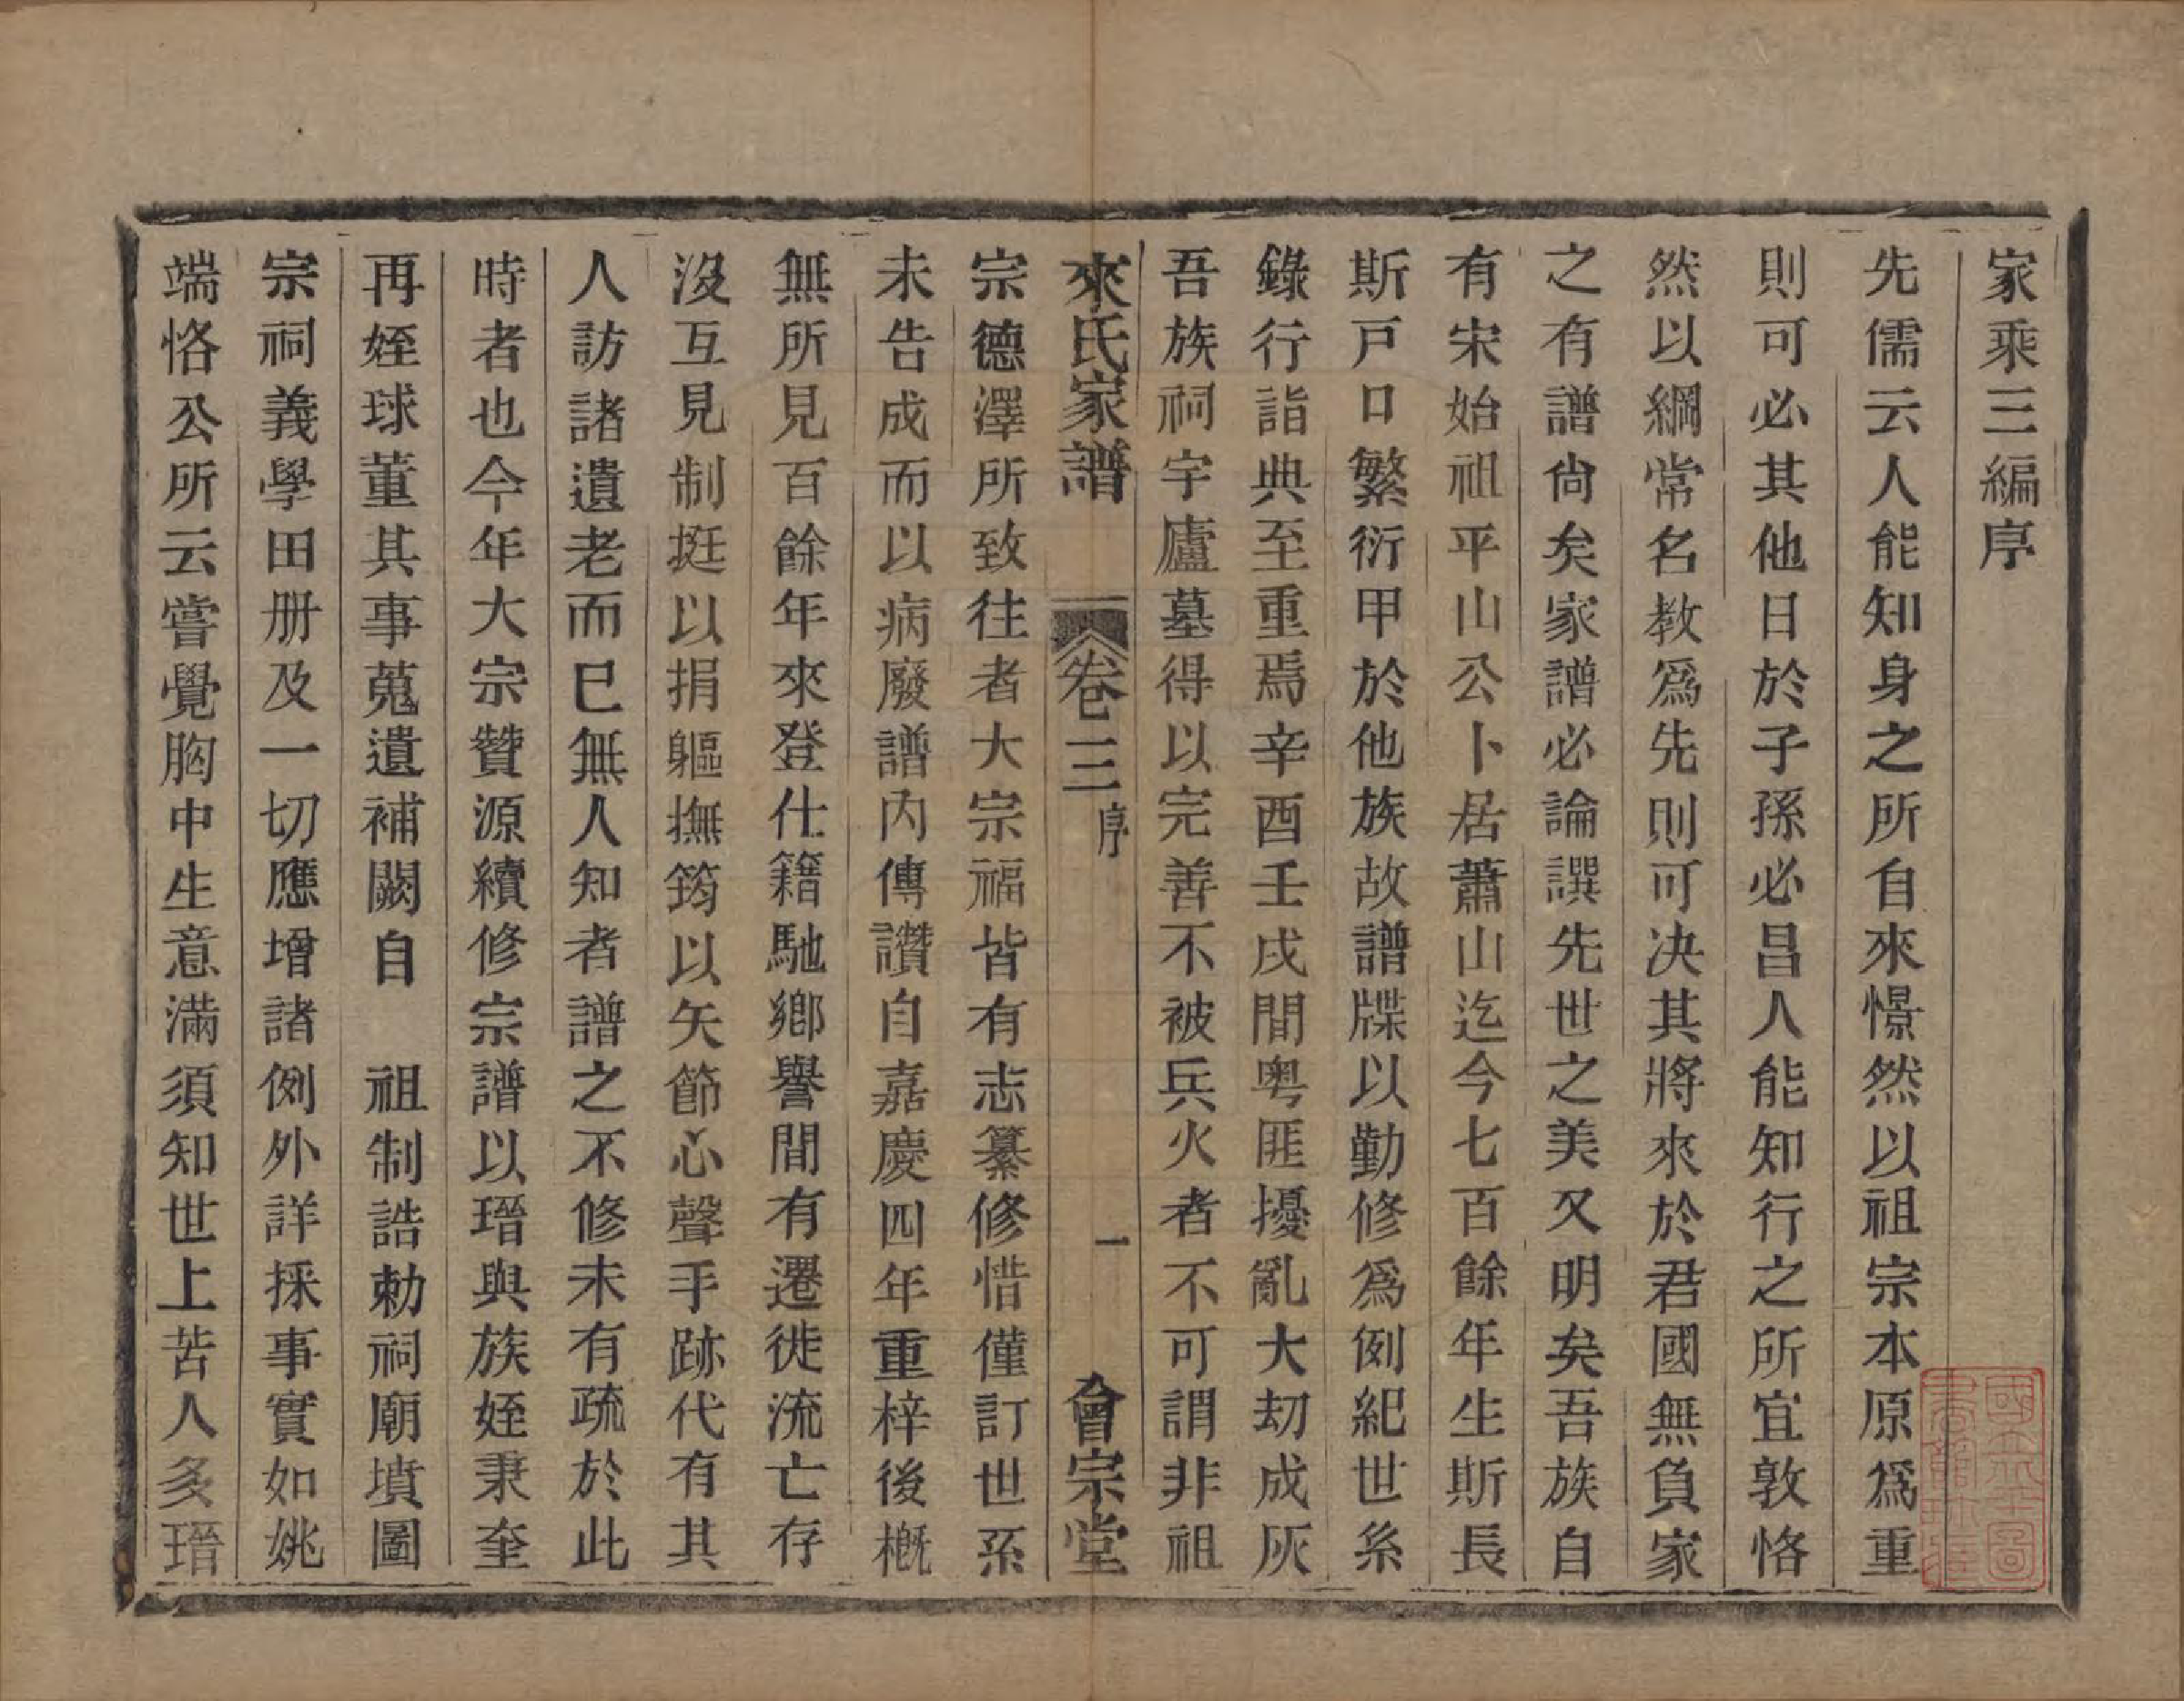 家乘三編序
先儒云人能知身之所自來憬然以祖宗本原爲重
則可必其他日於子孫必昌人能知行之所宜敦恪
然以綱常名教爲先則可決其將來於君國無負家
之有譜尙矣家譜必論譔先世之美又明矣吾族自
有宋始祖平山公卜居蕭山迄今七百餘年生斯長
斯戸口繁衍甲於他族故譜牒以勤修爲例紀世系
錄行詣典至重焉辛酉壬戌間粤匪擾亂大刧成灰
吾族祠宇廬墓得以完善不被兵火者不可謂非祖
來氏家譜 卷三 序 一 會宗堂
宗德澤所致往者大宗福皆有志纂修惜僅訂世系
未告成而以病廢譜内傳讚自嘉慶四年重梓後概
無所見百餘年來登仕籍馳鄉譽間有遷徙流亡存
沒互見制挺以捐軀撫筠以矢節心聲手跡代有其
人訪諸遺老而已無人知者譜之不修未有疏於此
時者也今年大宗贊源續修宗譜以瑨與族姪秉奎
再姪球董其事蒐遺補闕自 祖制誥勅祠廟墳圖
宗祠義學田册及一切應增諸例外詳採事實如姚
端恪公所云嘗覺胸中生意滿須知世上苦人多瑨